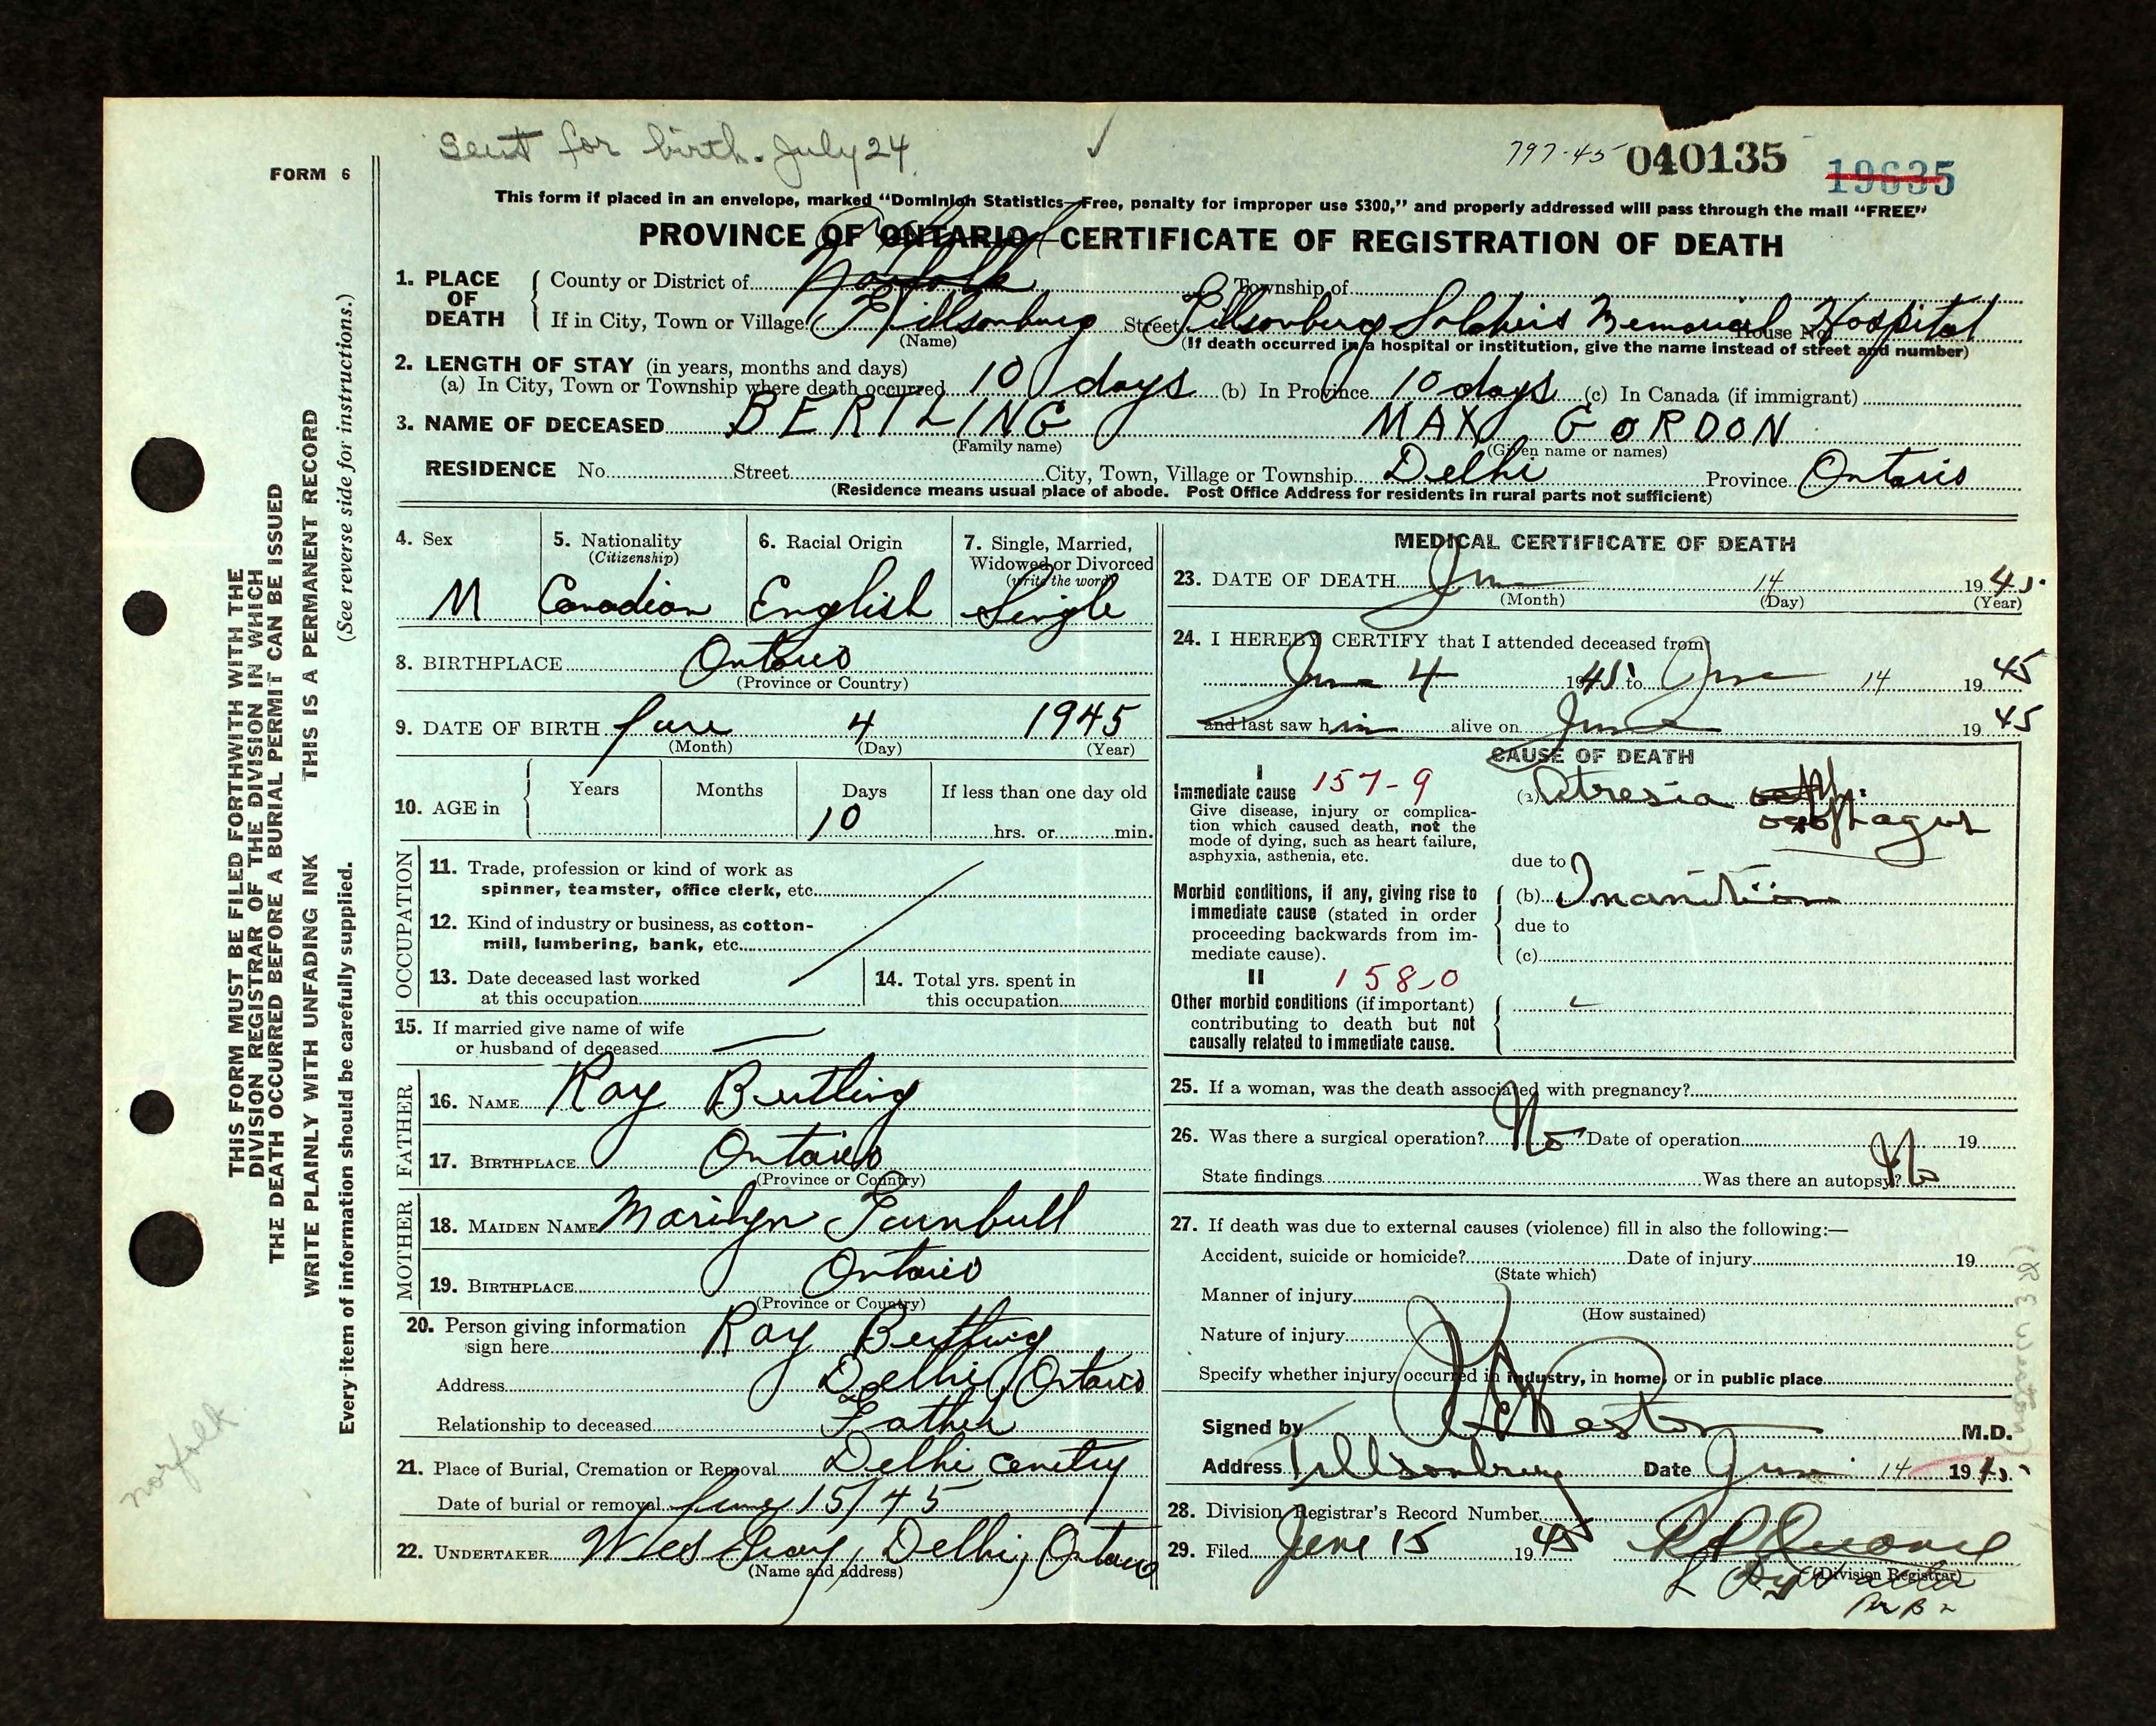 Sent for birth. July 24
797-45 040135 19635
FORM 6
This form if placed in an envelope, marked "Dominion Statistics—Free, penalty for improper use $300," and properly addressed will pass through the mail "FREE"
PROVINCE OF ONTARIO—CERTIFICATE OF REGISTRATION OF DEATH
1. PLACE OF DEATH
County or District of Norfolk Township of
If in City, Town or Village Tillsonburg Street Tillsonburg Soldiers Memorial Hospital House No.
(Name) (If death occurred in a hospital or institution, give the name instead of street and number)
2. LENGTH OF STAY (in years, months and days)
(a) In City, Town or Township where death occurred 10 days (b) In Province 10 days (c) In Canada (if immigrant)
3. NAME OF DECEASED BERTLING MAX GORDON
(Family name) (Given name or names)
RESIDENCE No. Street City, Town, Village or Township Delhi Province Ontario
(Residence means usual place of abode. Post Office Address for residents in rural parts not sufficient)
4. Sex
M
5. Nationality
(Citizenship)
Canadian
6. Racial Origin
English
7. Single, Married,
Widowed or Divorced
(write the word)
Single
8. BIRTHPLACE Ontario
(Province or Country)
9. DATE OF BIRTH June 4 1945
(Month) (Day) (Year)
10. AGE in
Years Months Days If less than one day old
10 hrs. or min.
OCCUPATION
11. Trade, profession or kind of work as
spinner, teamster, office clerk, etc.
12. Kind of industry or business, as cotton-
mill, lumbering, bank, etc.
13. Date deceased last worked
at this occupation
14. Total yrs. spent in
this occupation
15. If married give name of wife
or husband of deceased
FATHER
16. NAME Roy Bertling
17. BIRTHPLACE Ontario
(Province or Country)
MOTHER
18. MAIDEN NAME Marilyn Turnbull
19. BIRTHPLACE Ontario
(Province or Country)
20. Person giving information
sign here Roy Bertling
Address Delhi Ontario
Relationship to deceased Father
21. Place of Burial, Cremation or Removal Delhi Cemetry
Date of burial or removal June 15/45
22. UNDERTAKER Wes Gray, Delhi, Ontario
(Name and address)
MEDICAL CERTIFICATE OF DEATH
23. DATE OF DEATH June 14 1945
(Month) (Day) (Year)
24. I HEREBY CERTIFY that I attended deceased from
June 4 1945 to June 14 1945
and last saw him alive on June 1945
CAUSE OF DEATH
I
Immediate cause 157-9
Give disease, injury or complica-
tion which caused death, not the
mode of dying, such as heart failure,
asphyxia, asthenia, etc.
(a) Atresia
oesophagus
due to
Morbid conditions, if any, giving rise to
immediate cause (stated in order
proceeding backwards from im-
mediate cause).
(b) Inanition
due to
(c)
II
158.0
Other morbid conditions (if important)
contributing to death but not
causally related to immediate cause.
25. If a woman, was the death associated with pregnancy?
26. Was there a surgical operation? No Date of operation 19
State findings Was there an autopsy? No
27. If death was due to external causes (violence) fill in also the following:—
Accident, suicide or homicide? Date of injury 19
(State which)
Manner of injury
(How sustained)
Nature of injury
Specify whether injury occurred in industry, in home, or in public place
Signed by M.D.
Address Tillsonburg Date June 14 1945
28. Division Registrar's Record Number
29. Filed June 15 1945
(Division Registrar)
THIS FORM MUST BE FILED FORTHWITH WITH THE
DIVISION REGISTRAR OF THE DIVISION IN WHICH
THE DEATH OCCURRED BEFORE A BURIAL PERMIT CAN BE ISSUED
WRITE PLAINLY WITH UNFADING INK THIS IS A PERMANENT RECORD
Every item of information should be carefully supplied. (See reverse side for instructions.)
norfolk